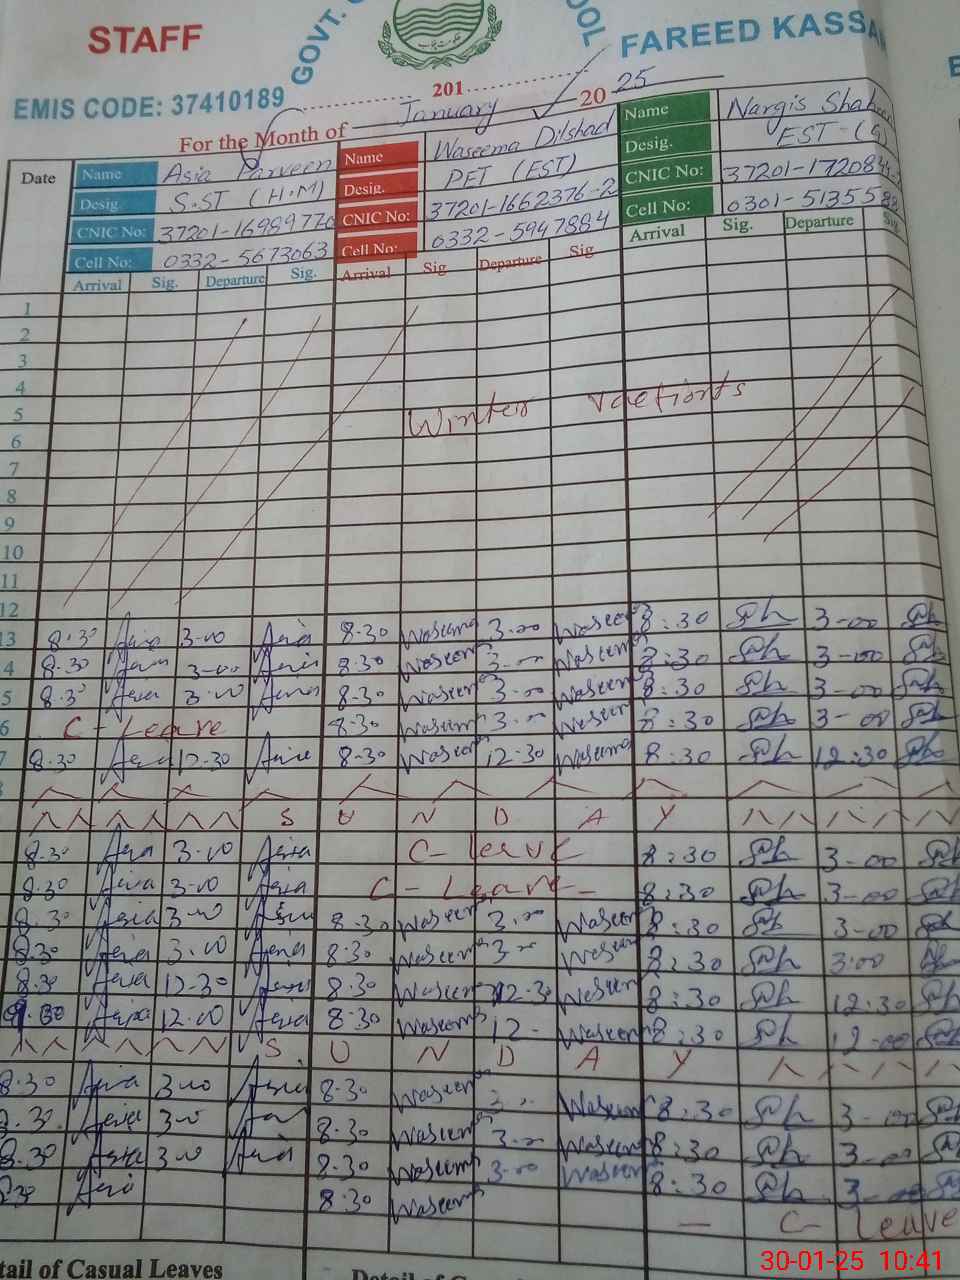 STAFF
GOVT.
FAREED KASSA
EMIS CODE: 37410189
201
For the Month of January 20 25
Date
Name Asia Parveen
Desig S.ST (H.M)
CNIC No: 37201-1698977
Cell No: 0332-5673063
Name Waseema Dilshad
Desig. PET (EST)
CNIC No: 37201-1662376-2
Cell No: 0332-5947884
Name Nargis Shaheen
Desig. EST-(G)
CNIC No: 37201-1720844
Cell No: 0301-5135588
Arrival Sig. Departure Sig. Arrival Sig Departure Sig Arrival Sig. Departure Sig
1
2
3
4
5 Winter Vactionts
6
7
8
9
10
11
12
13 8.30 Asia 3-00 Asia 8.30 Waseema 3.00 Waseema 8:30 Sh 3-00 Sh
4 8.30 Asia 3-00 Asia 8.30 Waseema 3-00 Waseema 8:30 Sh 3-00 Sh
5 8.30 Asia 3-00 Asia 8.30 Waseema 3-00 Waseema 8:30 Sh 3-00 Sh
6 C-Leave 8.30 Waseema 3-00 Waseem 8:30 Sh 3-00 Sh
7 8.30 Asia 12-30 Asia 8.30 Waseema 12-30 Waseema 8:30 Sh 12:30 Sh
S U N D A Y
8.30 Asia 3-00 Asia C-Leave 8:30 Sh 3-00 Sh
8.30 Asia 3-00 Asia C-Leave 8:30 Sh 3-00 Sh
8.30 Asia 3-00 Asia 8.30 Waseema 3.00 Waseem 8:30 Sh 3-00 Sh
8.30 Asia 3.00 Asia 8.30 Waseema 3-00 Waseem 8:30 Sh 3:00 Sh
8.30 Asia 12-30 Asia 8.30 Waseema 12.30 Waseem 8:30 Sh 12:30 Sh
8.30 Asia 12.00 Asia 8.30 Waseema 12- Waseem 8:30 Sh 12-00 Sh
S U N D A Y
8.30 Asia 3-00 Asia 8.30 Waseema 3.. Waseem 8:30 Sh 3-00 Sh
8.30 Asia 3-00 Asia 8.30 Waseema 3-00 Waseem 8:30 Sh 3-00 Sh
8.30 Asia 3-00 Asia 8.30 Waseema 3-00 Waseem 8:30 Sh 3-00 Sh
8.30 Asia 8.30 Waseema - C- Leave
tail of Casual Leaves
30-01-25 10:41